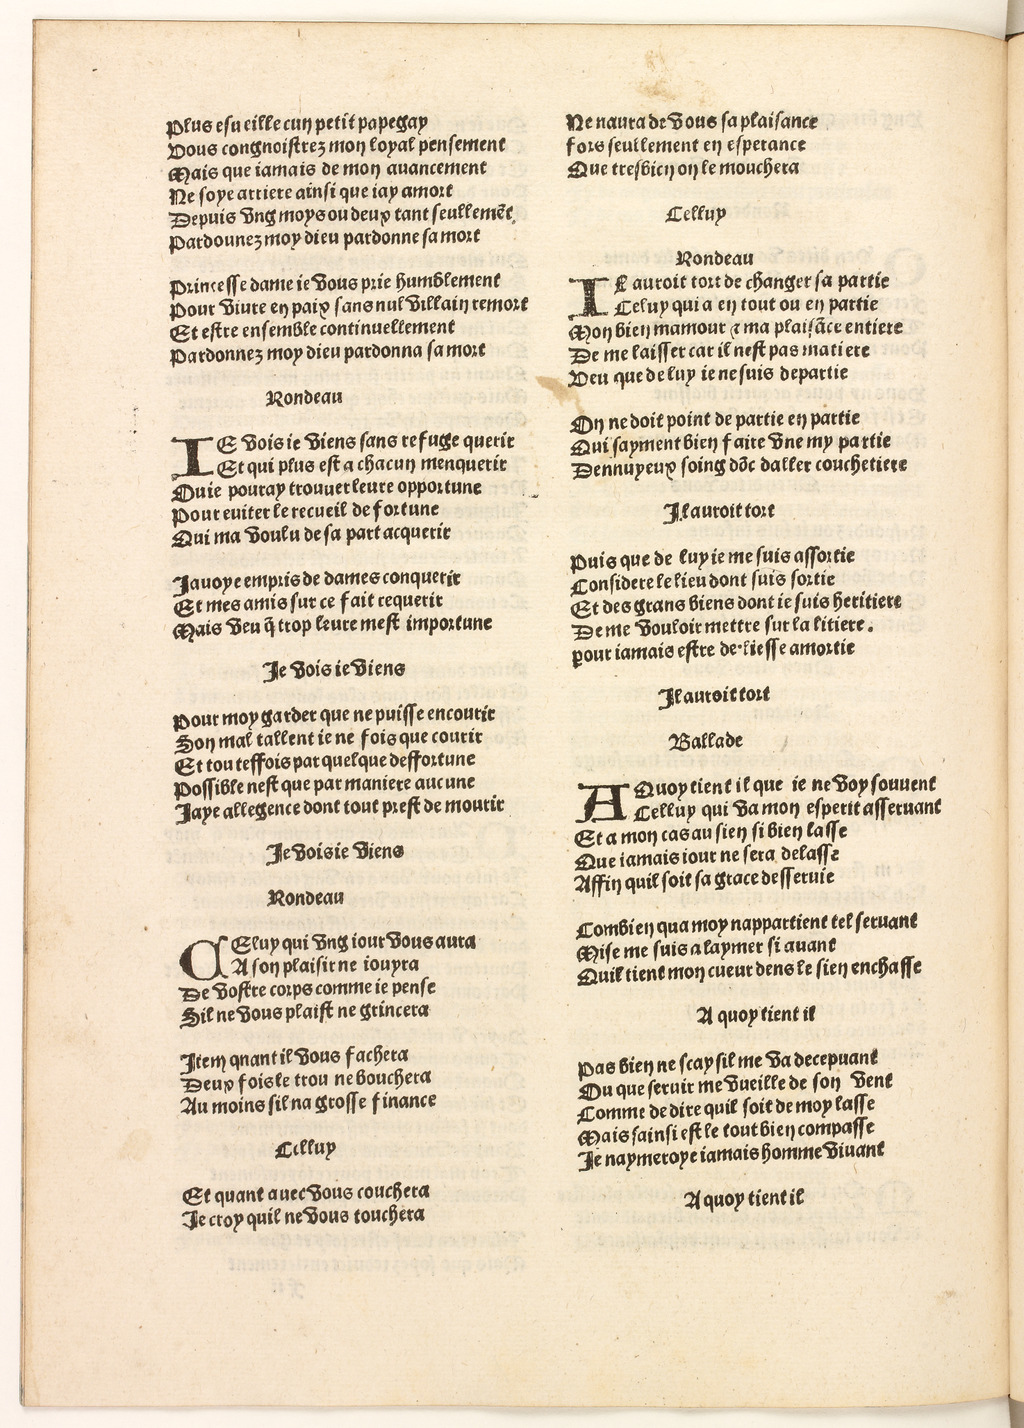 Plus esueille cun petit papegay
Vous congnoistrez mon loyal pensement
Mais que iamais de mon auancement
Ne soye arriere ainsi que iay amort
Depuis vng moys ou deux tant seullemēt
Pardounez moy dieu pardonne sa mort
Princesse dame ie vous prie humblement
Pour viure en paix sans nul villain remort
Et estre ensemble continuellement
Pardonnez moy dieu pardonna sa mort
Rondeau
IE vois ie viens sans refuge querir
Et qui plus est a chacun menquerir
Ou ie pouray trouuer leure opportune
Pour euiter le recueil de fortune
Qui ma voulu de sa part acquerir
Jauoye empris de dames conquerir
Et mes amis sur ce fait requerir
Mais veu q̄ trop leure mest importune
Je vois ie viens
Pour moy garder que ne puisse encourir
Son mal tallent ie ne fois que courir
Et touteffois par quelque deffortune
Possible nest que par maniere aucune
Jaye allegence dont tout prest de mourir
Je vois ie viens
Rondeau
CEluy qui vng iour vous aura
A son plaisir ne iouyra
De vostre corps comme ie pense
Sil ne vous plaist ne grincera
Item qnant il vous fachera
Deux fois le trou ne bouchera
Au moins sil na grosse finance
Celluy
Et quant auec vous couchera
Je croy quil ne vous touchera
Ne naura de vous sa plaisance
fors seullement en esperance
Que tresbien on le mouchera
Celluy
Rondeau
IL auroit tort de changer sa partie
Celuy qui a en tout ou en partie
Mon bien mamour ⁊ ma plaisāce entiere
De me laisser car il nest pas matiere
Veu que de luy ie ne suis departie
On ne doit point de partie en partie
Qui sayment bien faire vne my partie
Dennuyeux soing dōc daller couchetiere
Il auroit tort
Puis que de luy ie me suis assortie
Considere le lieu dont suis sortie
Et des grans biens dont ie suis heritiere
De me vouloir mettre sur la litiere.
pour iamais estre de liesse amortie
Il auroit tort
Ballade
AQuoy tient il que ie ne voy souuent
Celluy qui va mon esperit asseruant
Et a mon cas au sien si bien lasse
Que iamais iour ne sera delasse
Affin quil soit sa grace desseruie
Combien qua moy nappartient tel seruant
Mise me suis a laymer si auant
Quil tient mon cueur dens le sien enchasse
A quoy tient il
Pas bien ne scay sil me va deceuant
Ou que seruir me vueille de son vent
Comme de dire quil soit de moy lasse
Mais sainsi est le tout bien compasse
Je naymeroye iamais homme viuant
A quoy tient il